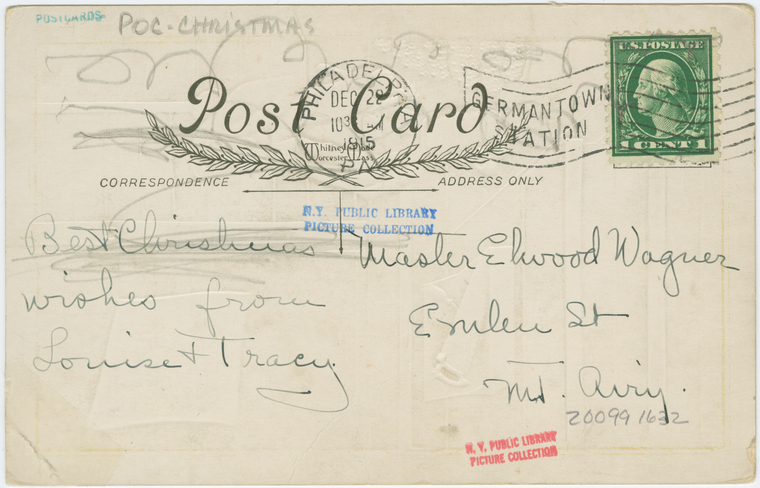 POSTCARDS
POC-CHRISTMAS
Post Card
PHILADELPHIA, PA.
DEC 22
1030 AM
1915
GERMANTOWN
STATION
U.S. POSTAGE
1 CENT 1
Whitney Made
Worcester, Mass
CORRESPONDENCE
ADDRESS ONLY
N.Y. PUBLIC LIBRARY
PICTURE COLLECTION
Best Christmas
wishes from
Louise & Tracy
Master Elwood Wagner
Emlen St
Mt. Airy.
20099 1632
N. Y. PUBLIC LIBRARY
PICTURE COLLECTION